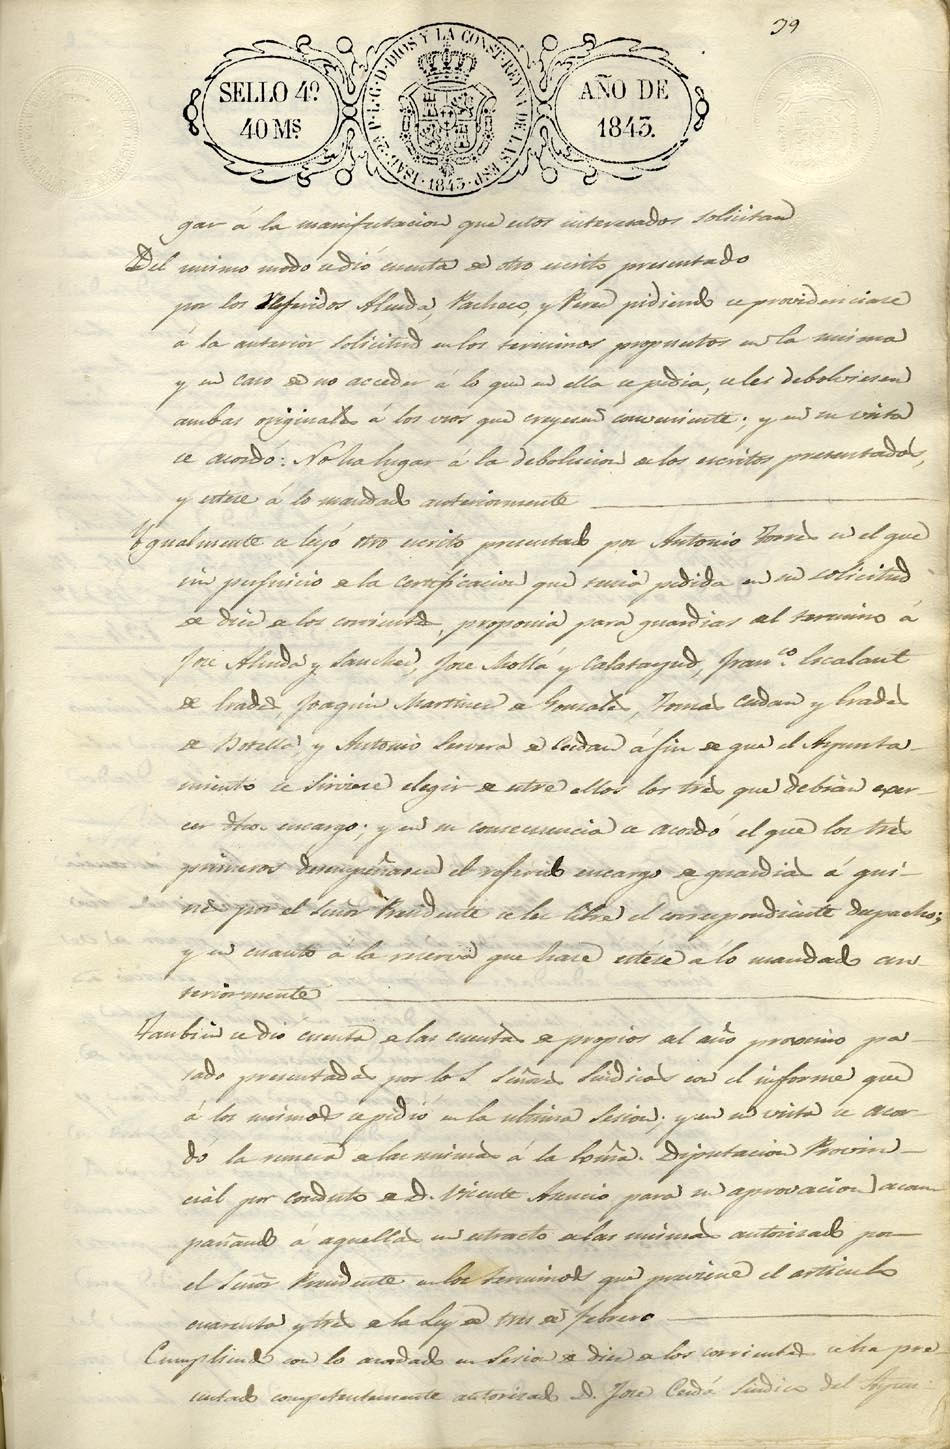 39
SELLO 4º
40 Ms
ISAB. 2ª P. L. G. D. DIOS Y LA CONST. REYNA DE LAS ESP.
1843
AÑO DE
1843.
gar á la manifestacion que estos interesados solicitan
Del mismo modo se dió cuenta de otro escrito presentado
por los referidos Pacheco, y pidiendo se providenciase
á la anterior solicitud en los terminos propuestos en la misma
y en caso de no acceder á lo que en ella se pedia, se les debolviesen
ambas originales á los usos que creyesen conveniente; y en su vista
se acordó: No ha lugar á la debolucion de los escritos presentados,
y estese á lo mandado anteriormente
Ygualmente se leyó otro escrito presentado por Antonio Torres en el que
sin perjuicio de la certificacion que tenia pedida en su solicitud
de diez de los corrientes, proponia para guardias del termino á
José y Sanchez, José Mollá y Calatayud, Franco. Escalant
de Prades, Joaquin Martinez de Gonzales, Tomas y Prades
de Botella, y Antonio Servera de á fin de que el Ayunta-
miento se sirviese elegir de entre ellos los tres que debian exer-
cer dho. encargo; y en su consecuencia se acordó el que los tres
primeros desempeñasen el referido encargo de guardias á qui-
nes por el Señor Presidente se les libre el correspondiente despacho;
y en cuanto á la reserva que hace estese á lo mandado an-
teriormente
Tambien se dió cuenta de las cuentas de propios del año proximo pa-
sado presentadas por los Señores Sindicos con el informe que
á los mismos se pidió en la ultima Sesion; y en su vista se acor-
dó la remesa de las mismas á la Exma. Diputacion Provin-
cial por conduto de D. Vicente Asencio para su aprovacion acom-
pañando á aquellas un estracto de las mismas autorizado por
el Señor Presidente en los terminos que previene el articulo
cuarenta y tres de la Ley de tres de Febrero
Cumpliendo con lo acordado en Sesion de diez de los corrientes se ha pre-
sentado competentemente autorizado D. José Cerdá Sindico del Ayun-